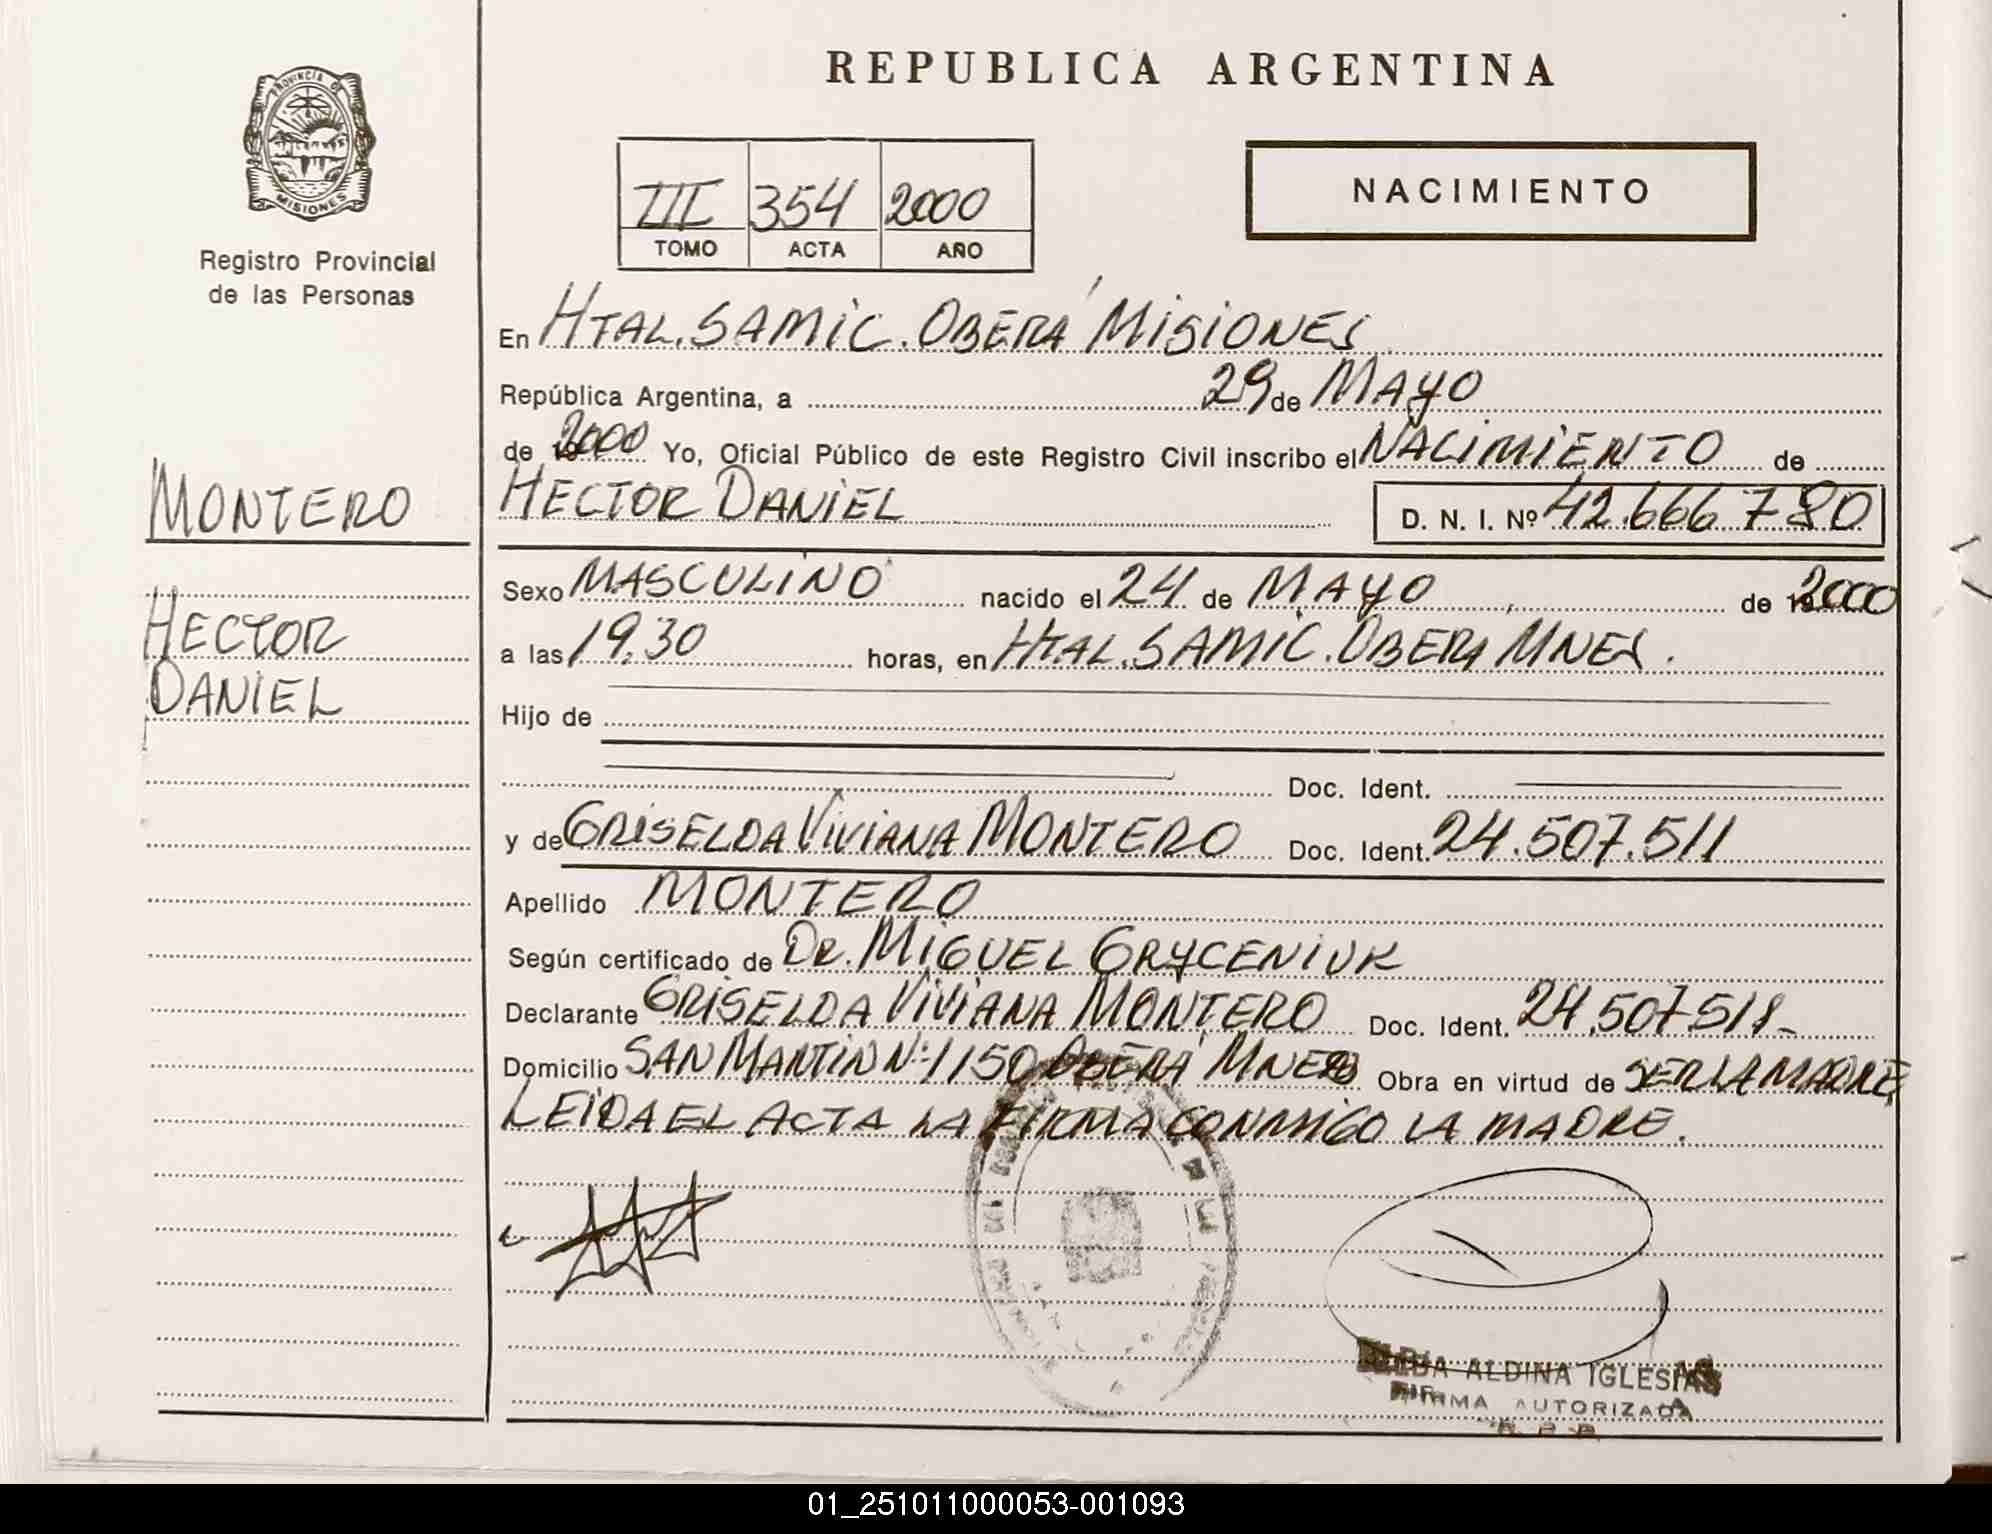 REPUBLICA ARGENTINA
PROVINCIA DE
MISIONES
Registro Provincial
de las Personas
III 354 2000
TOMO ACTA AÑO
NACIMIENTO
En HTAL. SAMIC. OBERÁ MISIONES
República Argentina, a 29 de MAYO
de 2000 Yo, Oficial Público de este Registro Civil inscribo el NACIMIENTO de
HECTOR DANIEL D. N. I. Nº 42.666.780
MONTERO
HECTOR
DANIEL
Sexo MASCULINO nacido el 24 de MAYO de 2000
a las 19.30 horas, en HTAL. SAMIC. OBERA MNES.
Hijo de
Doc. Ident.
y de GRISELDA VIVIANA MONTERO Doc. Ident. 24.507.511
Apellido MONTERO
Según certificado de Dr. MIGUEL GRYCENIUK
Declarante GRISELDA VIVIANA MONTERO Doc. Ident. 24.507.511-
Domicilio SAN MARTIN Nº 1150 OBERÁ MNES Obra en virtud de SER LA MADRE,
LEIDA EL ACTA LA FIRMA CONMIGO LA MADRE.
ALDINA IGLESIAS
FIRMA AUTORIZADA
01_251011000053-001093